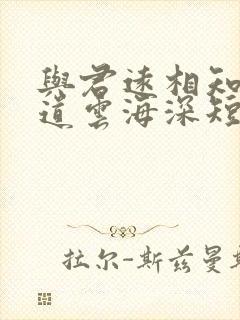 與君遠相知
道雲海深短
拉尔-斯兹曼斯